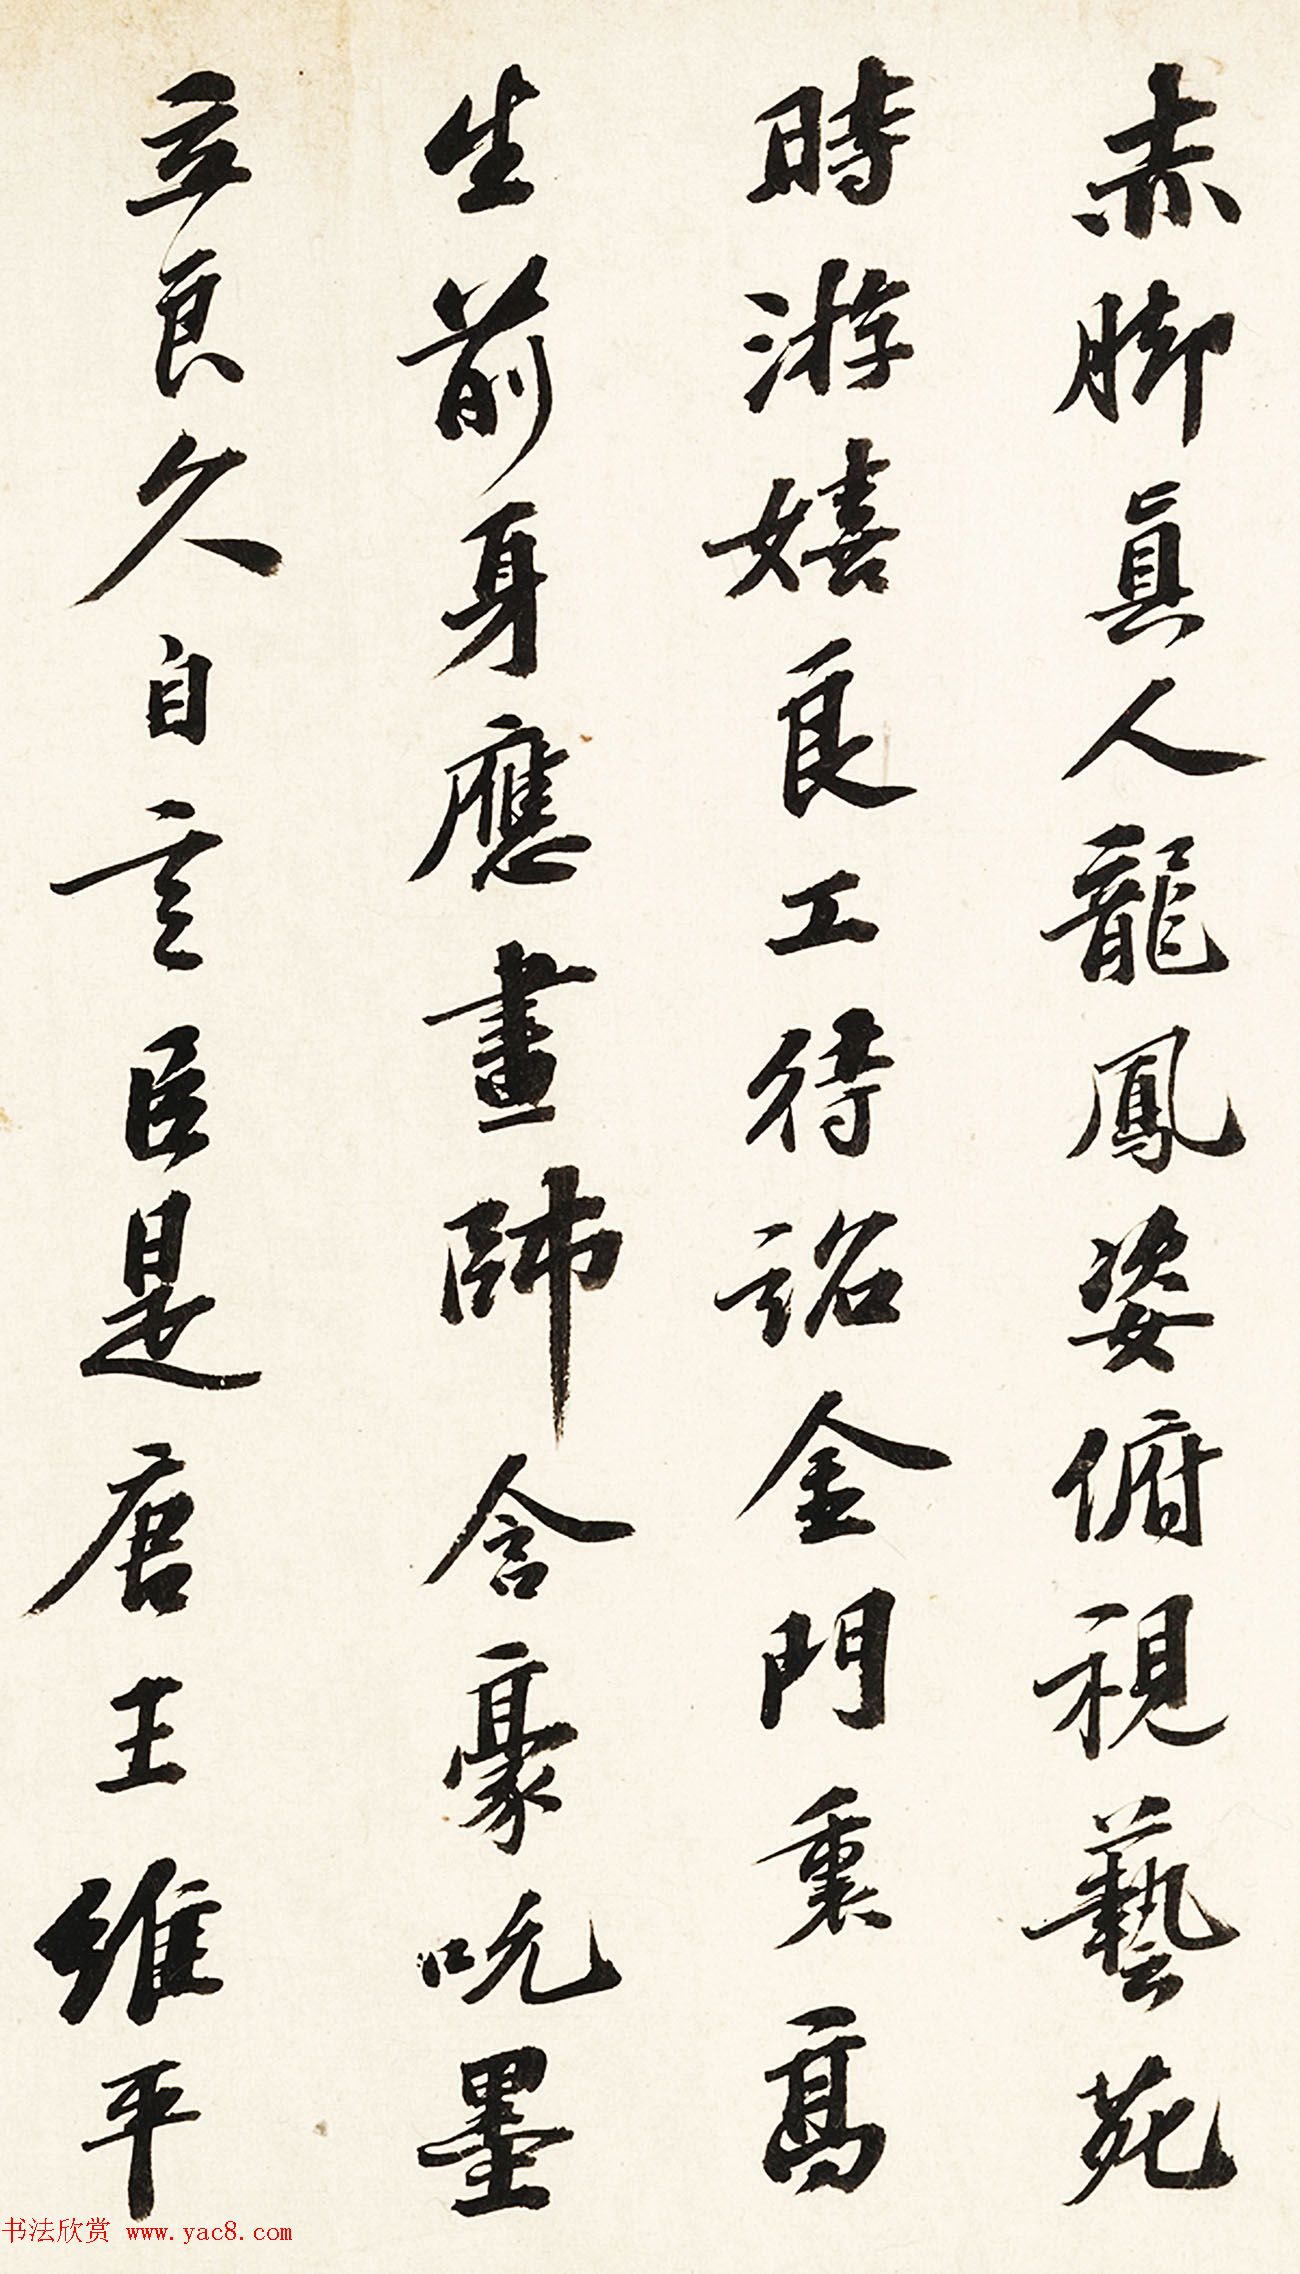 赤脚真人龍鳳姿俯視藝苑
時游嬉良工待詔金門裏高
生前身應畫師含豪吮墨
立良久自言臣是唐王維平
书法欣赏 www.yac8.com